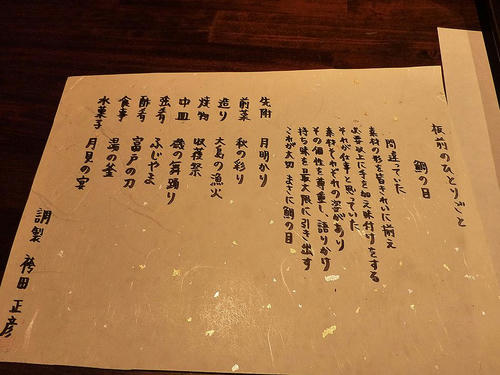 板前のひとりごと
鯛の目
間違っていた
素材の形を皆きれいに揃え
必要以上に手を加え味付けをする
それが仕事と思っていた
素材それぞれの姿があり
その個性を尊重し、語りかけ
持ち味を最大限に引き出す
これが大切 まさに鯛の目
先附 月明かり
前菜 秋の彩り
造り 大島の漁火
焼物 収穫祭
中皿 磯の舞踊り
強肴 ふじやま
酢肴 富戸の刀
食事 湯の釜
水菓子 月見の宴
調製 袴田 正彦